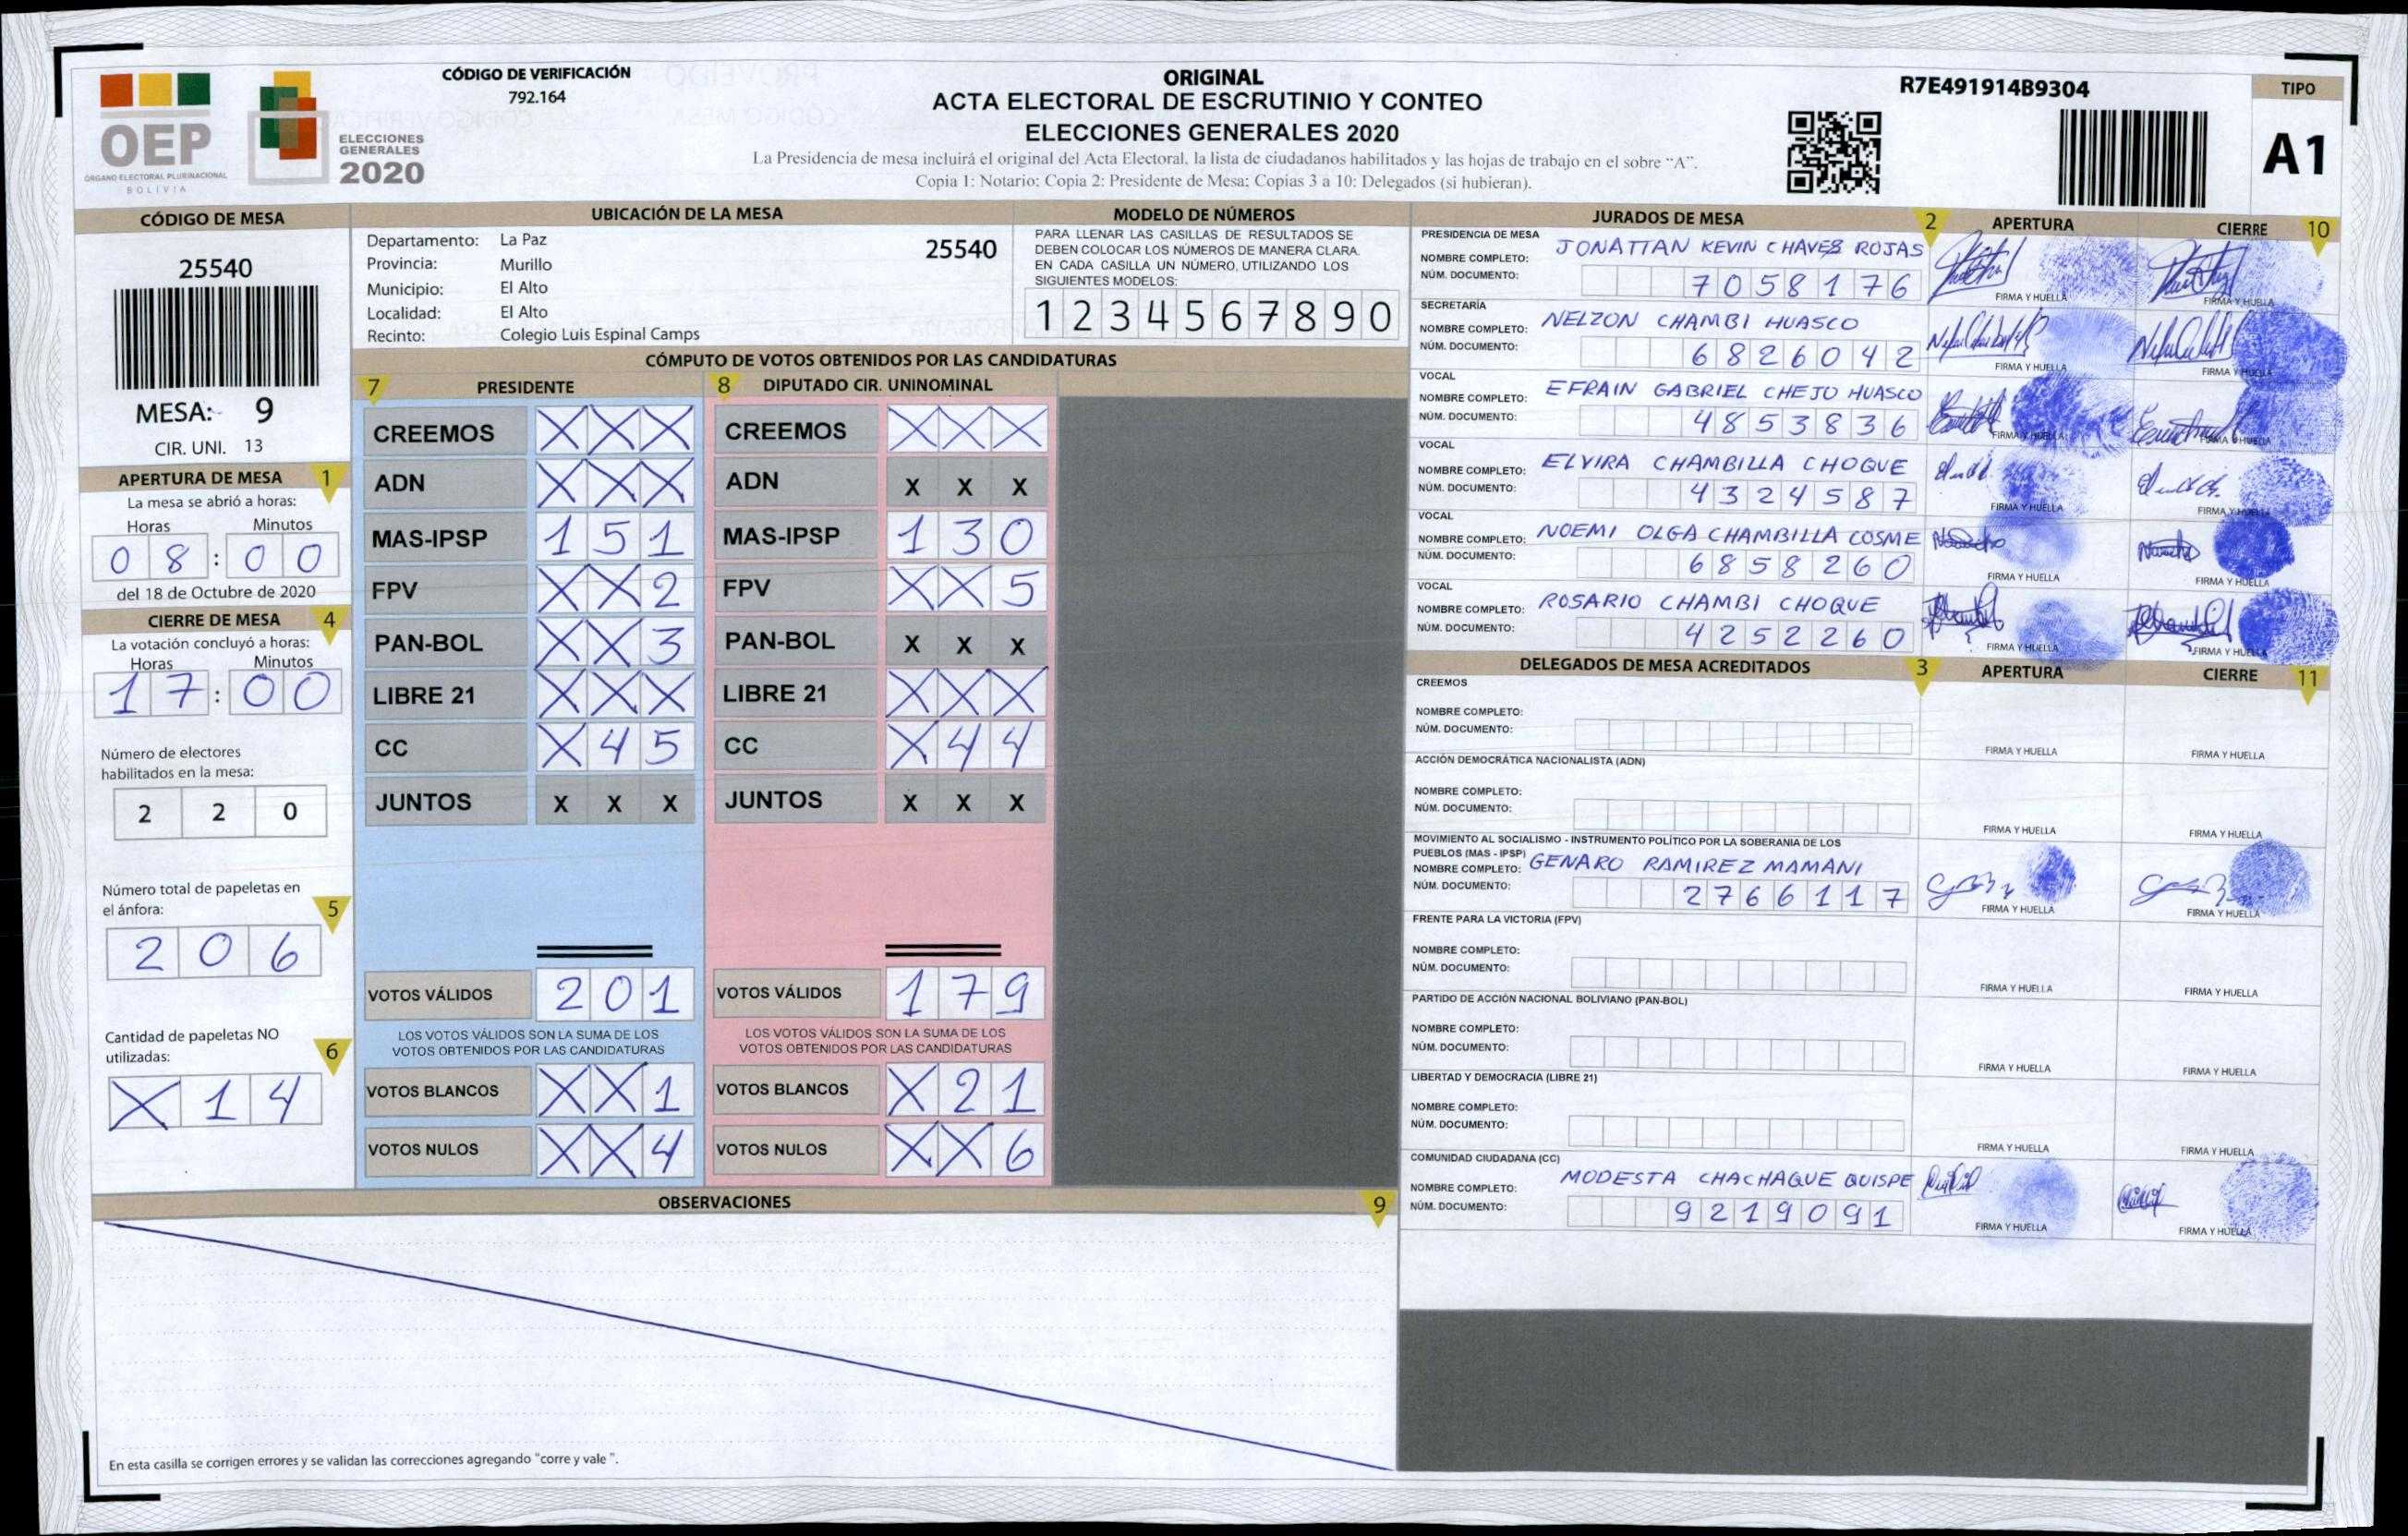 CÓDIGO DE VERIFICACIÓN
792.164
OEP
ÓRGANO ELECTORAL PLURINACIONAL
BOLIVIA
ELECCIONES
GENERALES
2020
ORIGINAL
ACTA ELECTORAL DE ESCRUTINIO Y CONTEO
ELECCIONES GENERALES 2020
La Presidencia de mesa incluirá el original del Acta Electoral, la lista de ciudadanos habilitados y las hojas de trabajo en el sobre "A".
Copia 1: Notario; Copia 2: Presidente de Mesa; Copias 3 a 10: Delegados (si hubieran).
R7E491914B9304
TIPO
A1
CÓDIGO DE MESA
25540
MESA: 9
CIR. UNI. 13
UBICACIÓN DE LA MESA
Departamento: La Paz
25540
Provincia: Murillo
Municipio: El Alto
Localidad: El Alto
Recinto: Colegio Luis Espinal Camps
MODELO DE NÚMEROS
PARA LLENAR LAS CASILLAS DE RESULTADOS SE
DEBEN COLOCAR LOS NÚMEROS DE MANERA CLARA.
EN CADA CASILLA UN NÚMERO, UTILIZANDO LOS
SIGUIENTES MODELOS:
1 2 3 4 5 6 7 8 9 0
APERTURA DE MESA 1
La mesa se abrió a horas:
Horas Minutos
0 8 : 0 0
del 18 de Octubre de 2020
CIERRE DE MESA 4
La votación concluyó a horas:
Horas Minutos
1 7 : 0 0
Número de electores
habilitados en la mesa:
2 2 0
Número total de papeletas en
el ánfora: 5
2 0 6
Cantidad de papeletas NO
utilizadas: 6
X 1 4
CÓMPUTO DE VOTOS OBTENIDOS POR LAS CANDIDATURAS
7 PRESIDENTE
CREEMOS X X X
ADN X X X
MAS-IPSP 1 5 1
FPV X X 2
PAN-BOL X X 3
LIBRE 21 X X X
CC X 4 5
JUNTOS X X X
VOTOS VÁLIDOS 2 0 1
LOS VOTOS VÁLIDOS SON LA SUMA DE LOS
VOTOS OBTENIDOS POR LAS CANDIDATURAS
VOTOS BLANCOS X X 1
VOTOS NULOS X X 4
8 DIPUTADO CIR. UNINOMINAL
CREEMOS X X X
ADN X X X
MAS-IPSP 1 3 0
FPV X X 5
PAN-BOL X X X
LIBRE 21 X X X
CC X 4 4
JUNTOS X X X
VOTOS VÁLIDOS 1 7 9
LOS VOTOS VÁLIDOS SON LA SUMA DE LOS
VOTOS OBTENIDOS POR LAS CANDIDATURAS
VOTOS BLANCOS X 2 1
VOTOS NULOS X X 6
OBSERVACIONES 9
En esta casilla se corrigen errores y se validan las correcciones agregando "corre y vale ".
JURADOS DE MESA 2 APERTURA CIERRE 10
PRESIDENCIA DE MESA
NOMBRE COMPLETO: JONATTAN KEVIN CHAVES ROJAS
NÚM. DOCUMENTO: 7 0 5 8 1 7 6
FIRMA Y HUELLA FIRMA Y HUELLA
SECRETARÍA
NOMBRE COMPLETO: NELZON CHAMBI HUASCO
NÚM. DOCUMENTO: 6 8 2 6 0 4 2
FIRMA Y HUELLA FIRMA Y HUELLA
VOCAL
NOMBRE COMPLETO: EFRAIN GABRIEL CHEJO HUASCO
NÚM. DOCUMENTO: 4 8 5 3 8 3 6
FIRMA Y HUELLA FIRMA Y HUELLA
VOCAL
NOMBRE COMPLETO: ELVIRA CHAMBILLA CHOQUE
NÚM. DOCUMENTO: 4 3 2 4 5 8 7
FIRMA Y HUELLA FIRMA Y HUELLA
VOCAL
NOMBRE COMPLETO: NOEMI OLGA CHAMBILLA COSME
NÚM. DOCUMENTO: 6 8 5 8 2 6 0
FIRMA Y HUELLA FIRMA Y HUELLA
VOCAL
NOMBRE COMPLETO: ROSARIO CHAMBI CHOQUE
NÚM. DOCUMENTO: 4 2 5 2 2 6 0
FIRMA Y HUELLA FIRMA Y HUELLA
DELEGADOS DE MESA ACREDITADOS 3 APERTURA CIERRE 11
CREEMOS
NOMBRE COMPLETO:
NÚM. DOCUMENTO:
FIRMA Y HUELLA FIRMA Y HUELLA
ACCIÓN DEMOCRÁTICA NACIONALISTA (ADN)
NOMBRE COMPLETO:
NÚM. DOCUMENTO:
FIRMA Y HUELLA FIRMA Y HUELLA
MOVIMIENTO AL SOCIALISMO - INSTRUMENTO POLÍTICO POR LA SOBERANIA DE LOS
PUEBLOS (MAS - IPSP)
NOMBRE COMPLETO: GENARO RAMIREZ MAMANI
NÚM. DOCUMENTO: 2 7 6 6 1 1 7
FIRMA Y HUELLA FIRMA Y HUELLA
FRENTE PARA LA VICTORIA (FPV)
NOMBRE COMPLETO:
NÚM. DOCUMENTO:
FIRMA Y HUELLA FIRMA Y HUELLA
PARTIDO DE ACCIÓN NACIONAL BOLIVIANO (PAN-BOL)
NOMBRE COMPLETO:
NÚM. DOCUMENTO:
FIRMA Y HUELLA FIRMA Y HUELLA
LIBERTAD Y DEMOCRACIA (LIBRE 21)
NOMBRE COMPLETO:
NÚM. DOCUMENTO:
FIRMA Y HUELLA FIRMA Y HUELLA
COMUNIDAD CIUDADANA (CC)
NOMBRE COMPLETO: MODESTA CHACHAQUE QUISPE
NÚM. DOCUMENTO: 9 2 1 9 0 9 1
FIRMA Y HUELLA FIRMA Y HUELLA